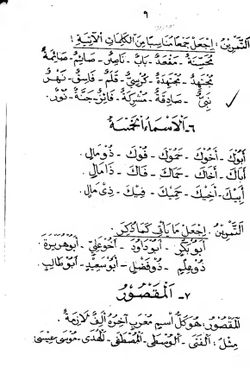 ٩
اَلتَّمْرِيْنُ : اِجْعَلْ جَمْعًا مُنَاسِبًا مِنَ الْكَلِمَاتِ الْآتِيَةِ !
مُحْسِنَةٌ - مَقْعَدٌ - بَابٌ - نَاصِرٌ - صَائِمٌ - صَائِمَةٌ
مُجْتَهِدٌ - مُجْتَهِدَةٌ - كُرْسِيٌّ - قَلَمٌ - فَاسِقٌ - نَهْرٌ
نَبِيٌّ - صَادِقَةٌ - مُشْرِكَةٌ - فَائِزٌ - جَنَّةٌ - نُورٌ .
٦- اَلْأَسْمَاءُ الْخَمْسَةُ
أَبُوْكَ - أَخُوْكَ - حَمُوْكَ - فُوْكَ - ذُوْمَالٍ
أَبَاكَ - أَخَاكَ - حَمَاكَ - فَاكَ - ذَامَالٍ
أَبِيْكَ - أَخِيْكَ - حَمِيْكَ - فِيْكَ - ذِيْ مَالٍ
اَلتَّمْرِيْنُ : اِجْعَلْ مَا يَأْتِي كَمَا ذُكِرَ .
أَبُوْبَكْرٍ - أَبُوْدَاوُدَ - أَخُوْعَلِيٍّ - أَبُوْهُرَيْرَةَ
ذُوْعِلْمٍ - ذُوْفَضْلٍ - أَبُوْسَعِيْدٍ - أَبُوْطَالِبٍ
٧- اَلْمَقْصُوْرُ
اَلْمَقْصُوْرُ : هُوَ كُلُّ اسْمٍ مُعْرَبٍ آخِرُهُ أَلِفٌ لَازِمَةٌ .
مِثْلُ : اَلْفَتَى - اَلْوُسْطَى - اَلْمُصْطَفَى - اَلْهُدَى - مُوْسَى عِيْسَى